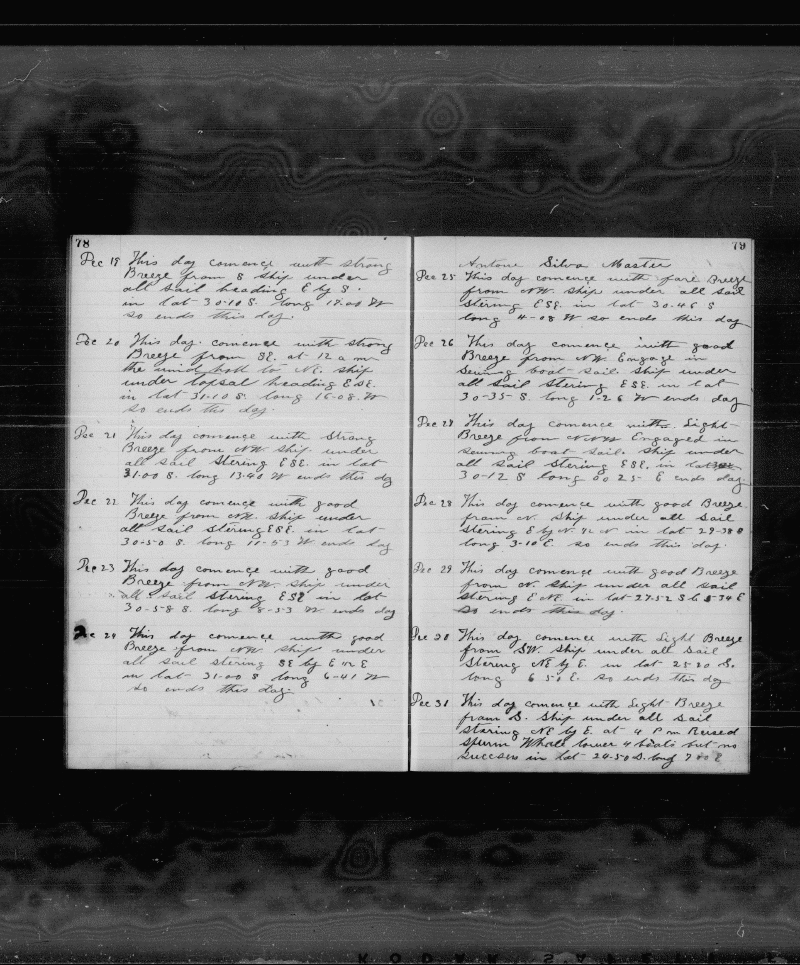 78
Dec 19 This day comence with strong
Breeze from S Ship under
all sail heading E by S.
in lat 30-10 S. long 19.00 W
so ends this day.
Dec 20 This day. comence with strong
Breeze from SE. at 12 a m
the wind hall to NE. ship
under topsal heading ESE.
in lat-31-10 S. long 16-08. W
so ends this day.
Dec 21 This day comence with Strong
Breeze from NW Ship under
all sail Stering ESE. in lat
31-00 S. long 13-40 W ends this day
Dec 22 This day comence with good
Breeze from NW. Ship under
all sail Stering ESE. in lat-
30-50 S. long 11-53 W ends day
Dec 23 This day comence with good
Breeze from NW. Ship under
all sail Stering ESE in lat
30-58 S. long 8-53 W ends day
Dec 24 This day comence with good
Breeze from NW. Ship under
all sail stering SE by E E
in lat- 31-00 S long 6-41 W
so ends this day.
79
Antone Silva Master
Dec 25 This day comence with fare Breeze
from NW. Ship under all sail
Stering ESE. in lat 30-46 S
long 4-08 W so ends this day
Dec 26 This day comence with good
Breeze from NW. Engage in
Sewing boat sail. Ship under
all sail Stering ESE. in lat
30-35-S long 1-26 W ends day
Dec 27 This day comence with. Light-
Breeze from NNW Engaged in
sewing boat sail. Ship under
all sail Stering ESE. in lat
30-12 S long 00 25 E ends day.
Dec 28 This day comence with good Breeze
from N. Ship under all sail
Stering E by N. N in lat 29-38 S
long 3-10 E. so ends this day.
Dec 29 This day comence with good Breeze
from N. Ship under all sail
Stering ENE. in lat-27-52 S 5-34 E
So ends this day.
Dec 30 This day comence with Light Breeze
from SW. Ship under all Sail
Stering NE by E. in lat 25-20 S.
long 6 50 E. so ends this day
Dec 31 This day comence with Light-Breeze
from S. Ship under all sail
staring NE by E. at 4 P m Raised
sperm Whale lower 4 boats but no
succses in lat- 24-50 S. long 7 00 E
KODAK SAFETY